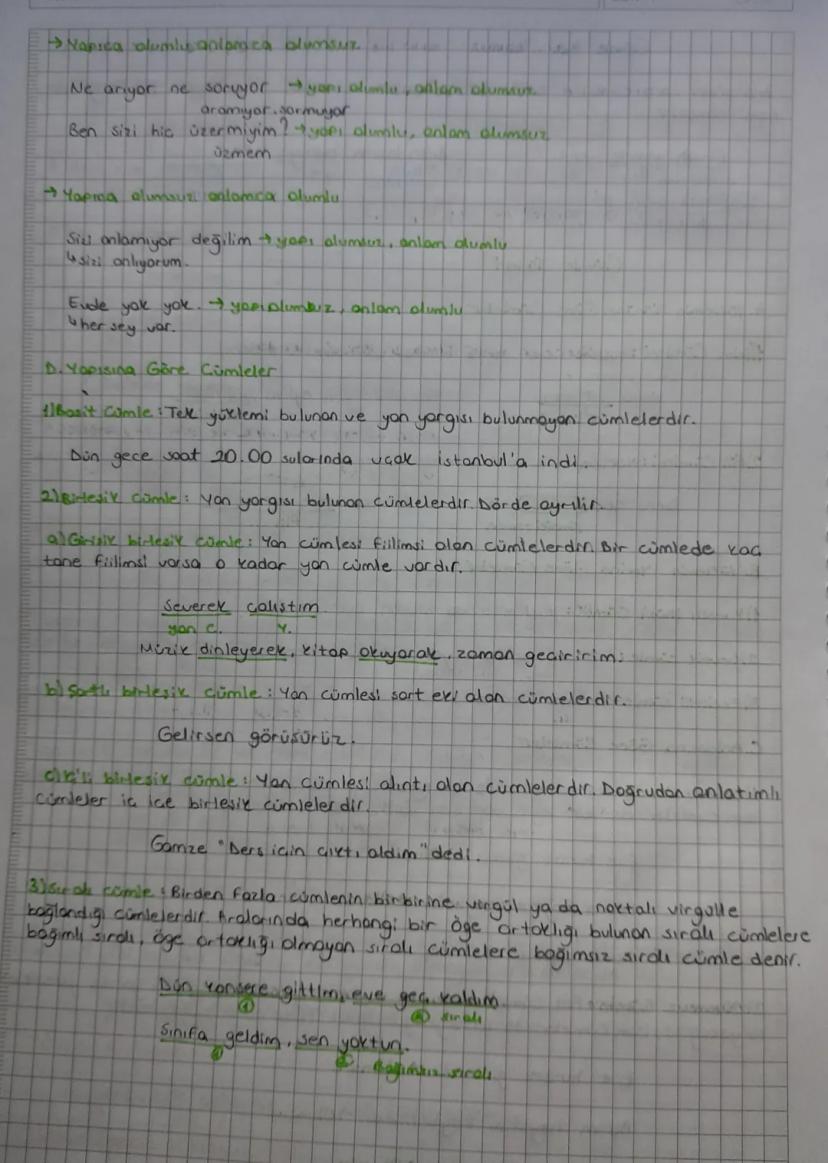 → Yapıca olumlu, anlamca olumsuz
Ne arıyor ne soruyor → yapı olumlu, anlam olumsuz
aramıyor, sormuyor
Ben sizi hiç üzermiyim? → yapı olumlu, anlam olumsuz
üzmem
→ Yapıca olumsuz anlamca olumlu
Sizi anlamıyor değilim → yapı olumsuz, anlam olumlu
↳ sizi anlıyorum.
Evde yok yok. → yapı olumsuz, anlam olumlu
↳ her şey var.
D. Yapısına Göre Cümleler
1) Basit Cümle: Tek yüklemi bulunan ve yan yargısı bulunmayan cümlelerdir.
Dün gece saat 20.00 sularında uçak İstanbul'a indi.
2) Birleşik Cümle: Yan yargısı bulunan cümlelerdir. Dörde ayrılır.
a) Girişik birleşik cümle: Yan cümlesi fiilimsi olan cümlelerdir. Bir cümlede kaç
tane fiilimsi varsa o kadar yan cümle vardır.
Severek çalıştım
yan c. Y.
Müzik dinleyerek, kitap okuyarak, zaman geçiririm.
b) Şartlı birleşik cümle: Yan cümlesi şart eki alan cümlelerdir.
Gelirsen görüşürüz.
birleşik cümle: Yan cümlesi alıntı olan cümlelerdir. Doğrudan anlatımlı
cümleler iç içe birleşik cümlelerdir.
Gamze "Ders için çıktı aldım" dedi.
3) Sıralı cümle: Birden fazla cümlenin birbirine virgül ya da noktalı virgülle
bağlandığı cümlelerdir. Aralarında herhangi bir öge ortaklığı bulunan sıralı cümlelere
bağımlı sıralı, öge ortaklığı olmayan sıralı cümlelere bağımsız sıralı cümle denir.
Dün konsere gittim, eve geç kaldım
① ② sıralı
Sınıfa geldim, sen yoktun.
① ② bağımsız sıralı